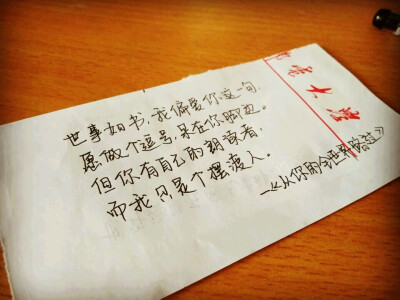 世事如书,我偏爱你这一句,
愿做个逗号,呆在你脚边。
但你有自己的朗读者,
而我只是个摆渡人。
—《从你的全世界路过》